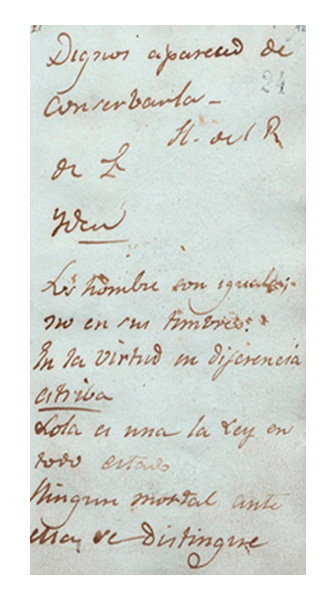 Dignos apareced de
24
Conservarla -
H. del R
de L
Yden
Los hombre son iguales;
no en sus timbres:
En la virtud su diferencia
estriba
Sola es una la Ley en
todo estado
Ningun mortal ante
ella, se distingue